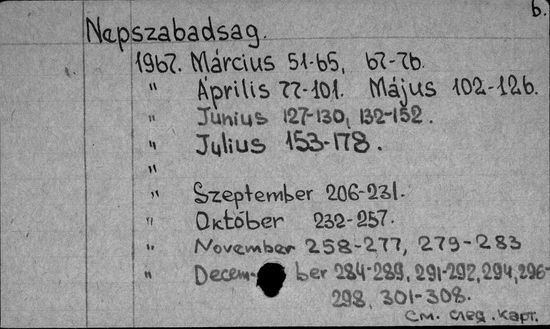 6.
Nepszabadsag.
1967. Március 51-65, 67-76.
" Április 77-101. Május 102-126.
" Junius 127-130, 132-152.
" Julius 153-178.
"
" Szeptember 206-231.
" Október 232-257.
" November 258-277, 279-283
" Decem- ber 284-289, 291-292, 294, 296-
298, 301-308.
см. след. карт.